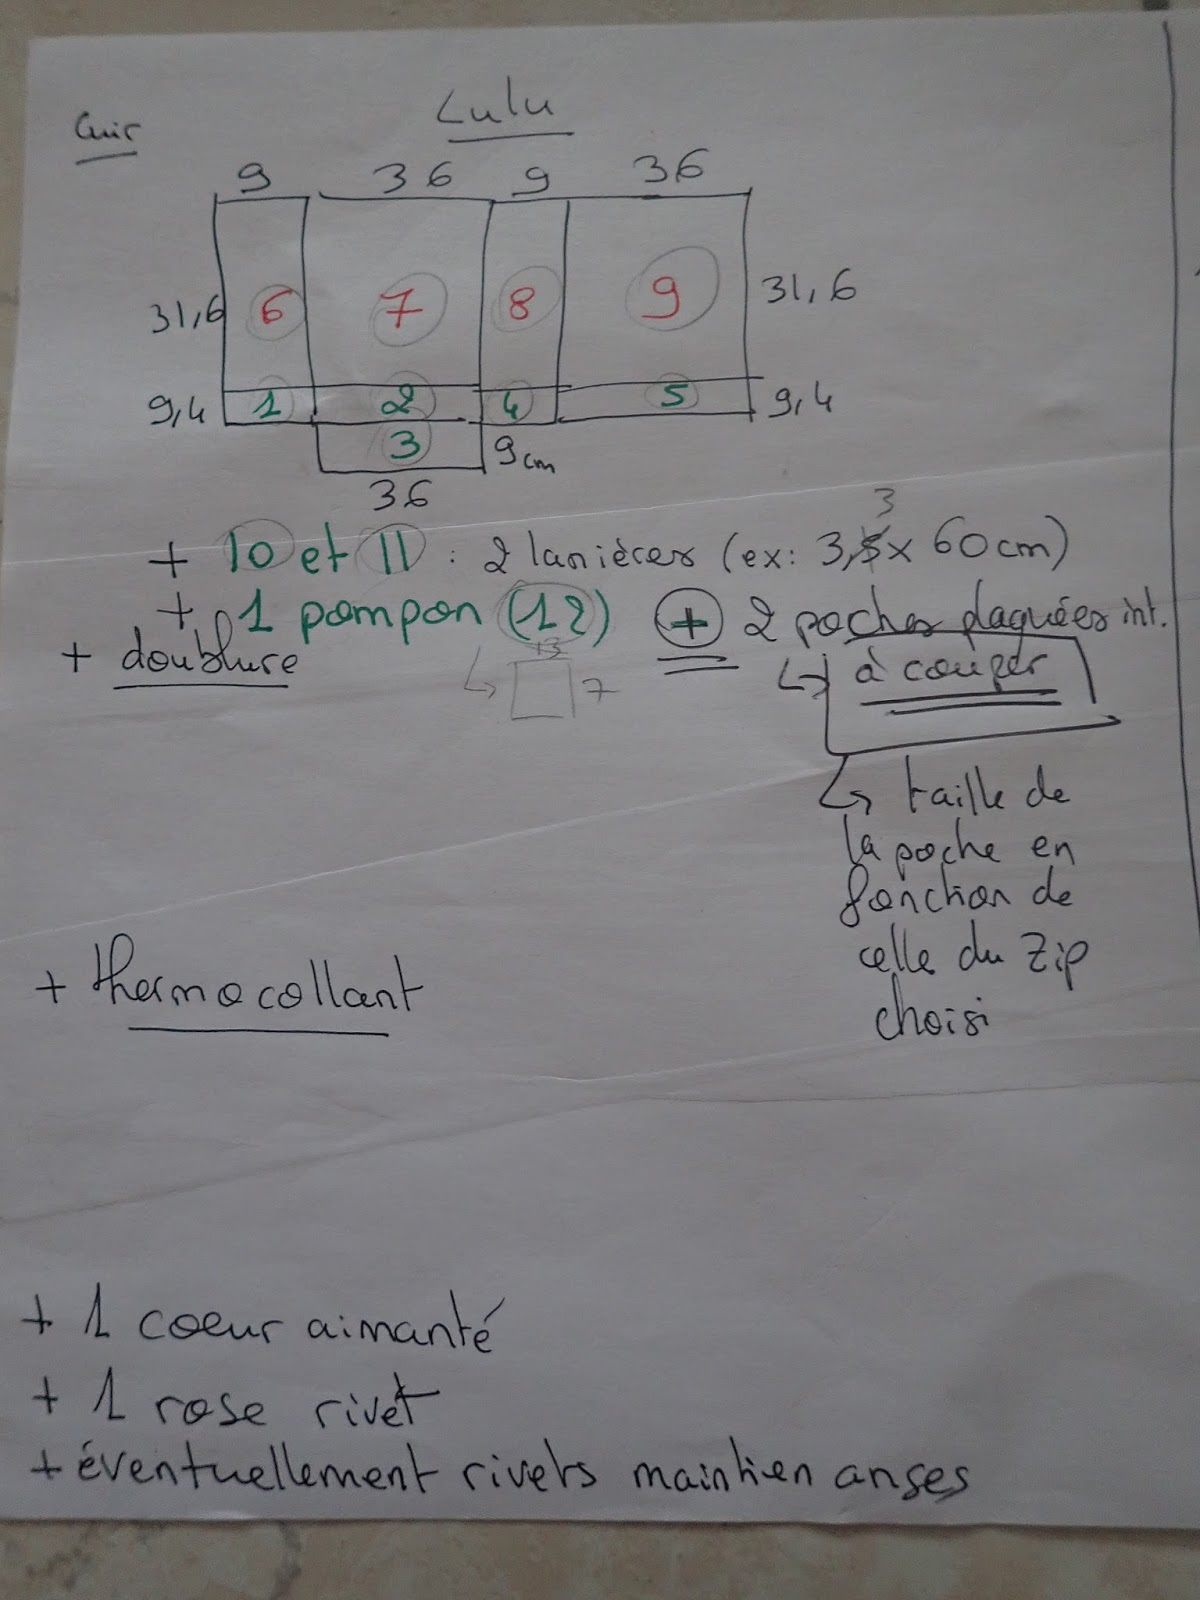 Cuir
Lulu
9 36 9 36
31,6 6 7 8 9 31,6
9,4 1 2 4 5 9,4
3 9cm
36
3
+ 10 et 11 : 2 lanières (ex: 3,5x 60cm)
+ 1 pompon (12) + 2 poches plaquées int.
+ doublure
7
à couper
taille de
la poche en
fonction de
celle du zip
choisi
+ thermocollant
+ 1 coeur aimanté
+ 1 rose rivet
+ éventuellement rivets maintien anses